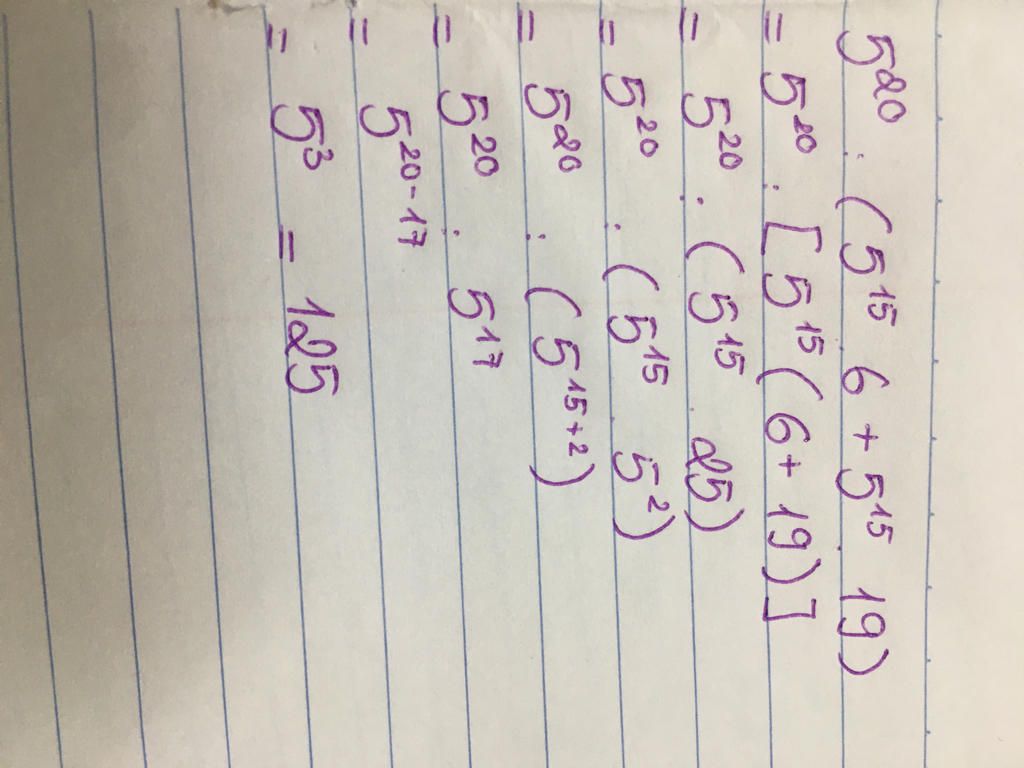 5²⁰ : (5¹⁵ . 6 + 5¹⁵ . 19)
= 5²⁰ : [5¹⁵ (6 + 19)]
= 5²⁰ : (5¹⁵ . 25)
= 5²⁰ : (5¹⁵ . 5²)
= 5²⁰ : (5¹⁵⁺²)
= 5²⁰ : 5¹⁷
= 5²⁰⁻¹⁷
= 5³ = 125